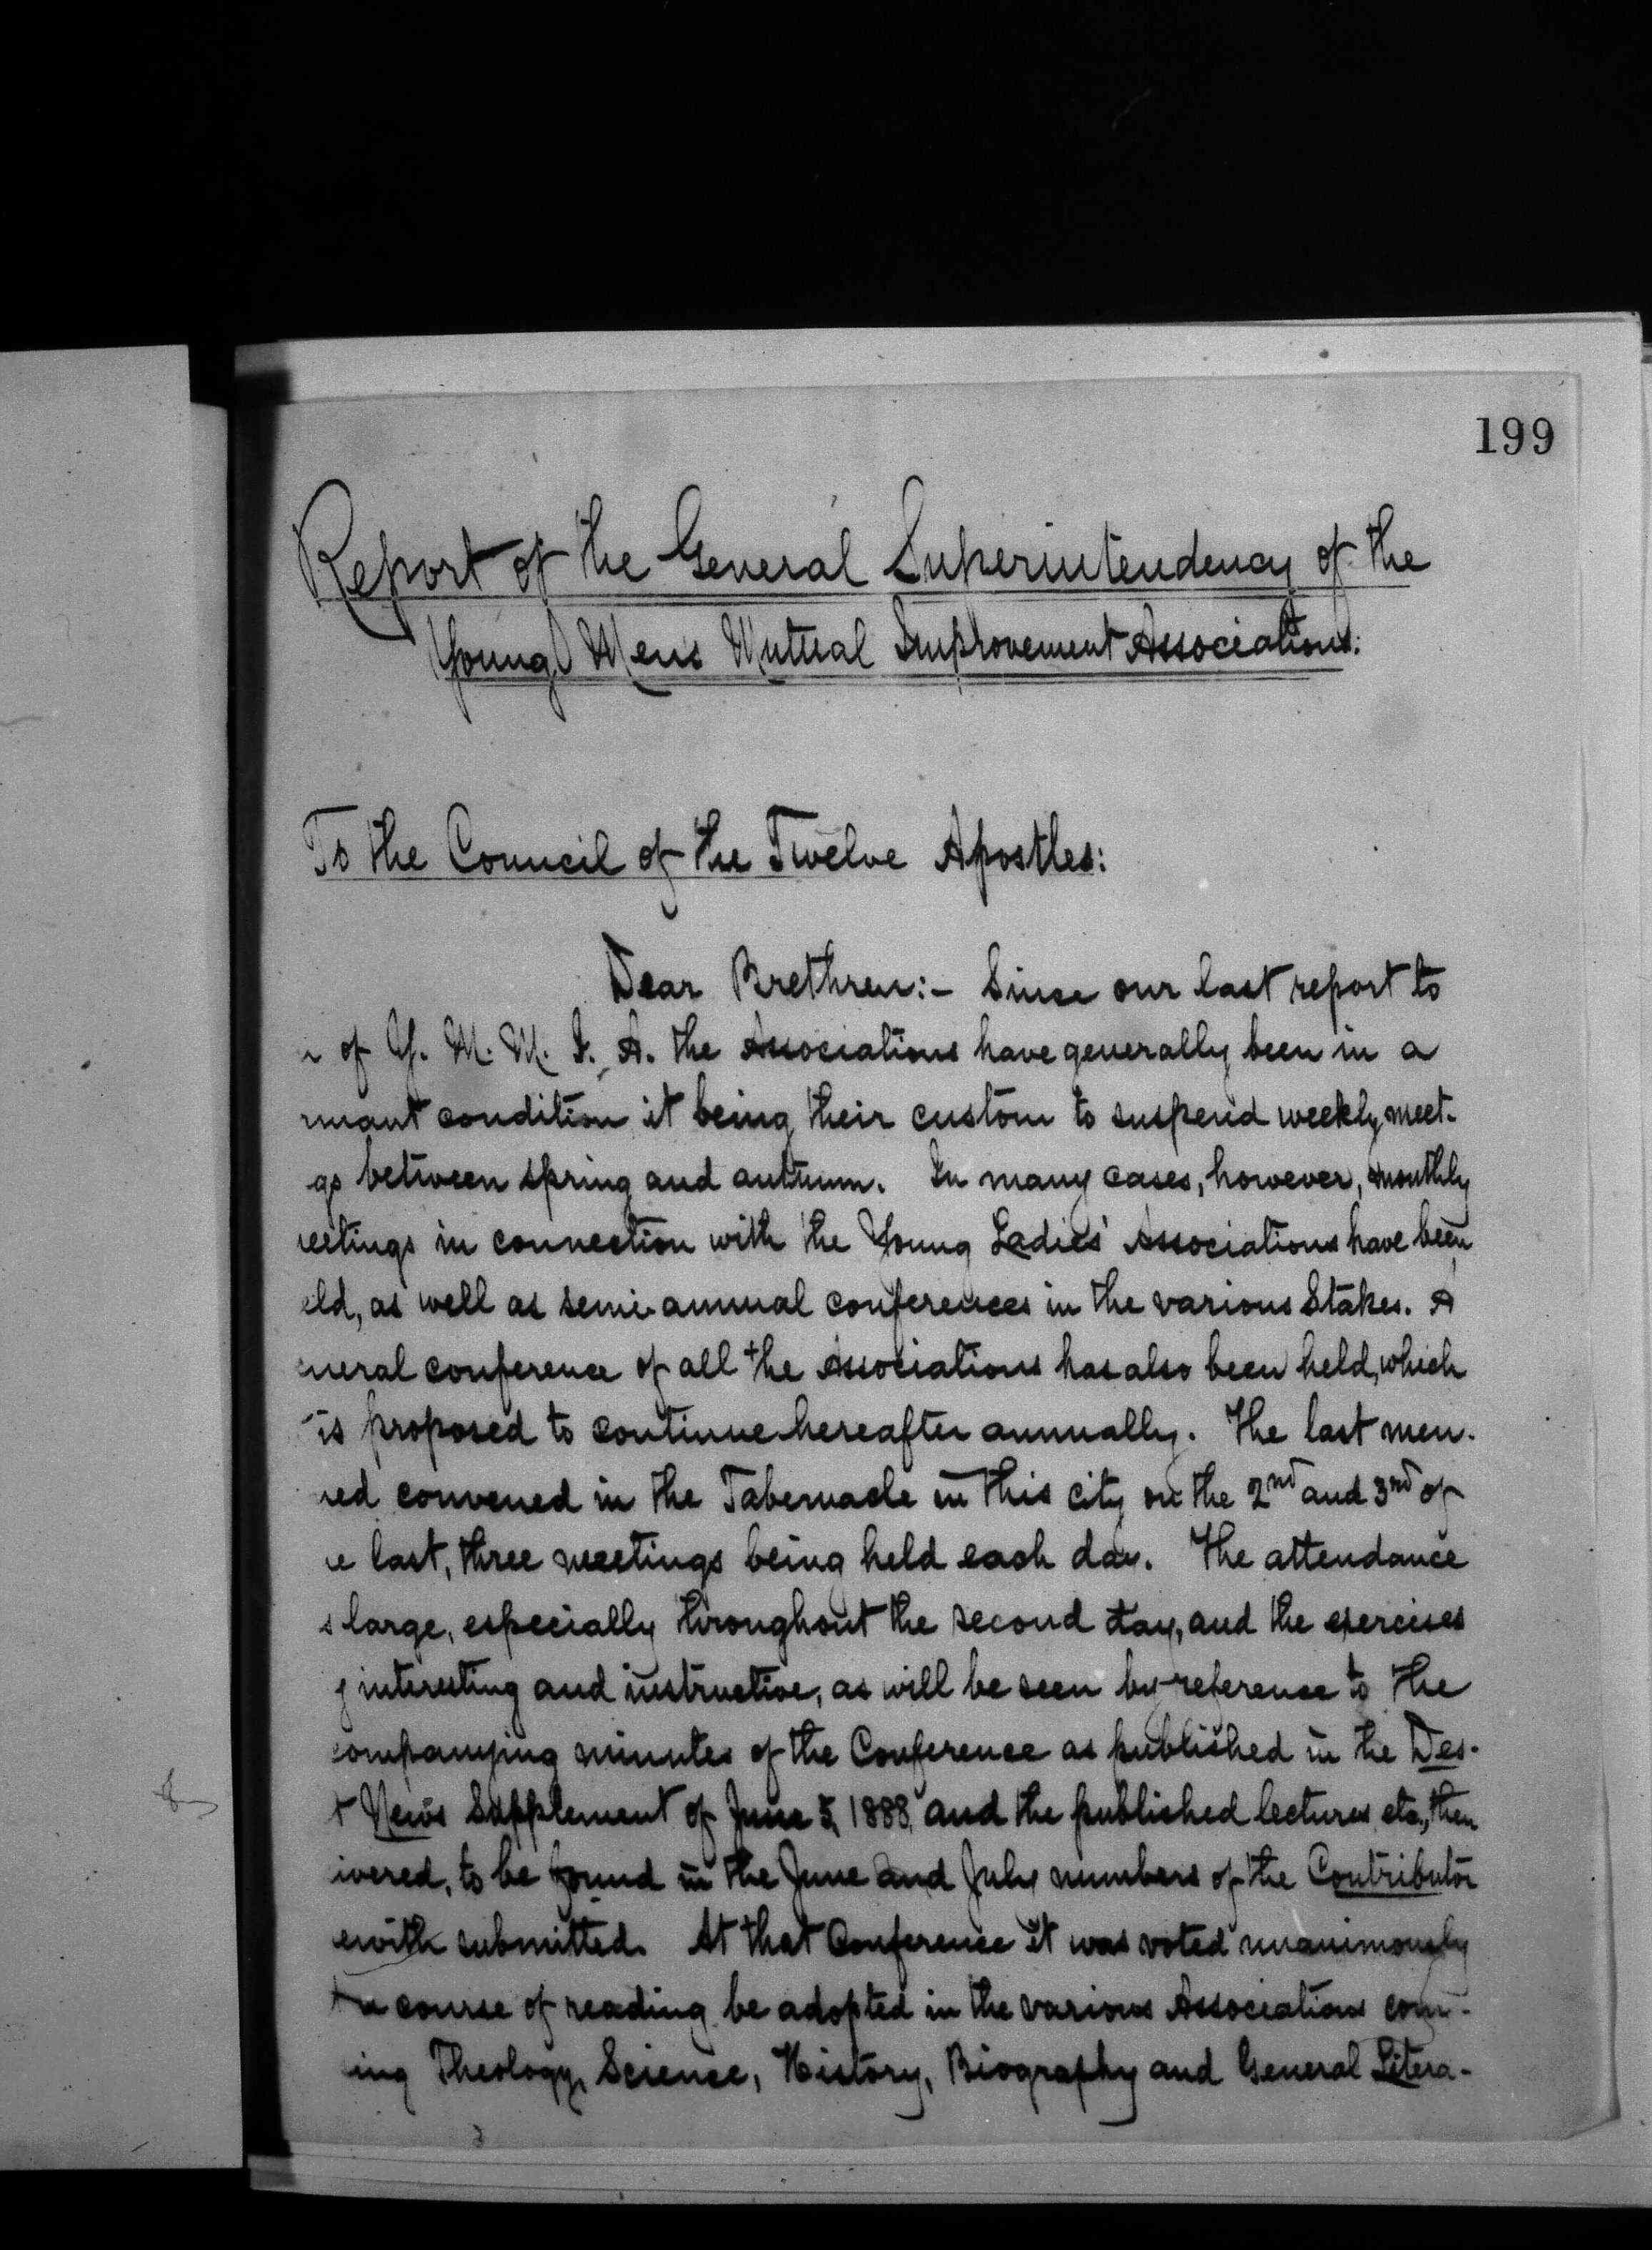 199
Report of the General Superintendency of the
Young Mens Mutual Improvement Associations:
To the Council of the Twelve Apostles:
Dear Brethren:- Since our last report to
of Y. M. M. I. A. the Associations have generally been in a
rmant condition it being their custom to suspend weekly meet-
gs between spring and autumn. In many cases, however, monthly
eetings in connection with the Young Ladies' Associations have been
eld, as well as semi-annual conferences in the various Stakes. A
eneral conference of all the Associations has also been held, which
is proposed to continue hereafter annually. The last men-
ned convened in the Tabernacle in this city on the 2nd and 3rd of
e last, three meetings being held each day. The attendance
s large, especially throughout the second day, and the exercises
g interesting and instructive, as will be seen by reference to the
companying minutes of the Conference as published in the Des-
t News Supplement of June 5, 1888, and the published lectures, etc., then
ivered, to be found in the June and July numbers of the Contributor
ewith submitted. At that Conference it was voted unanimously
a course of reading be adopted in the various Associations com-
ing Theology, Science, History, Biography and General Litera-